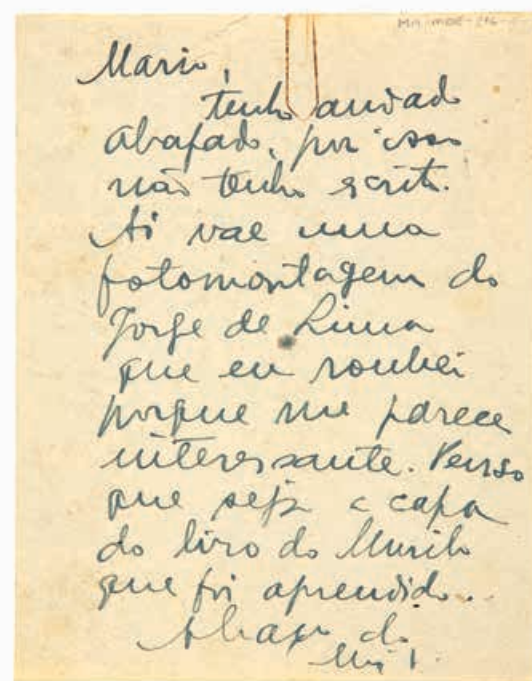 Mario,
tenho andado
abafado, por isso
não tenho escrito.
Aí vae uma
fotomontagem do
Jorge de Lima
que eu roubei
porque me parece
interessante. Penso
que seja a capa
do livro do Murilo
que foi aprendido..
Abraço do